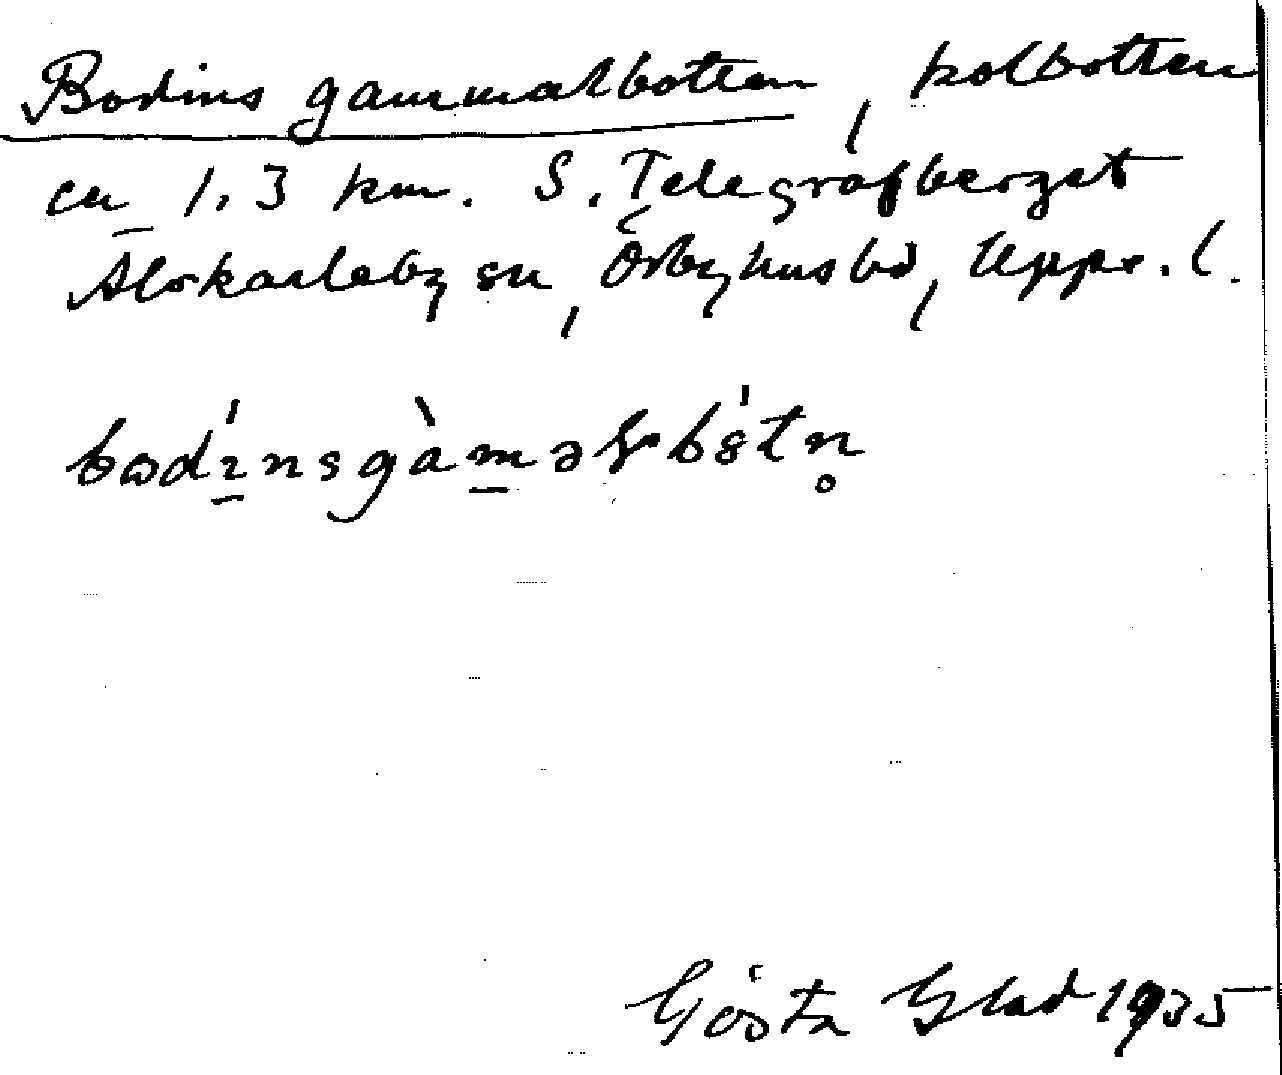 Bodins gammalbotten, kolbotten
ca 1,3 km. S. Telegrafberget
Älvkarleby sn, Örbyhus hd, Upps. l.
Gösta Blad 1935